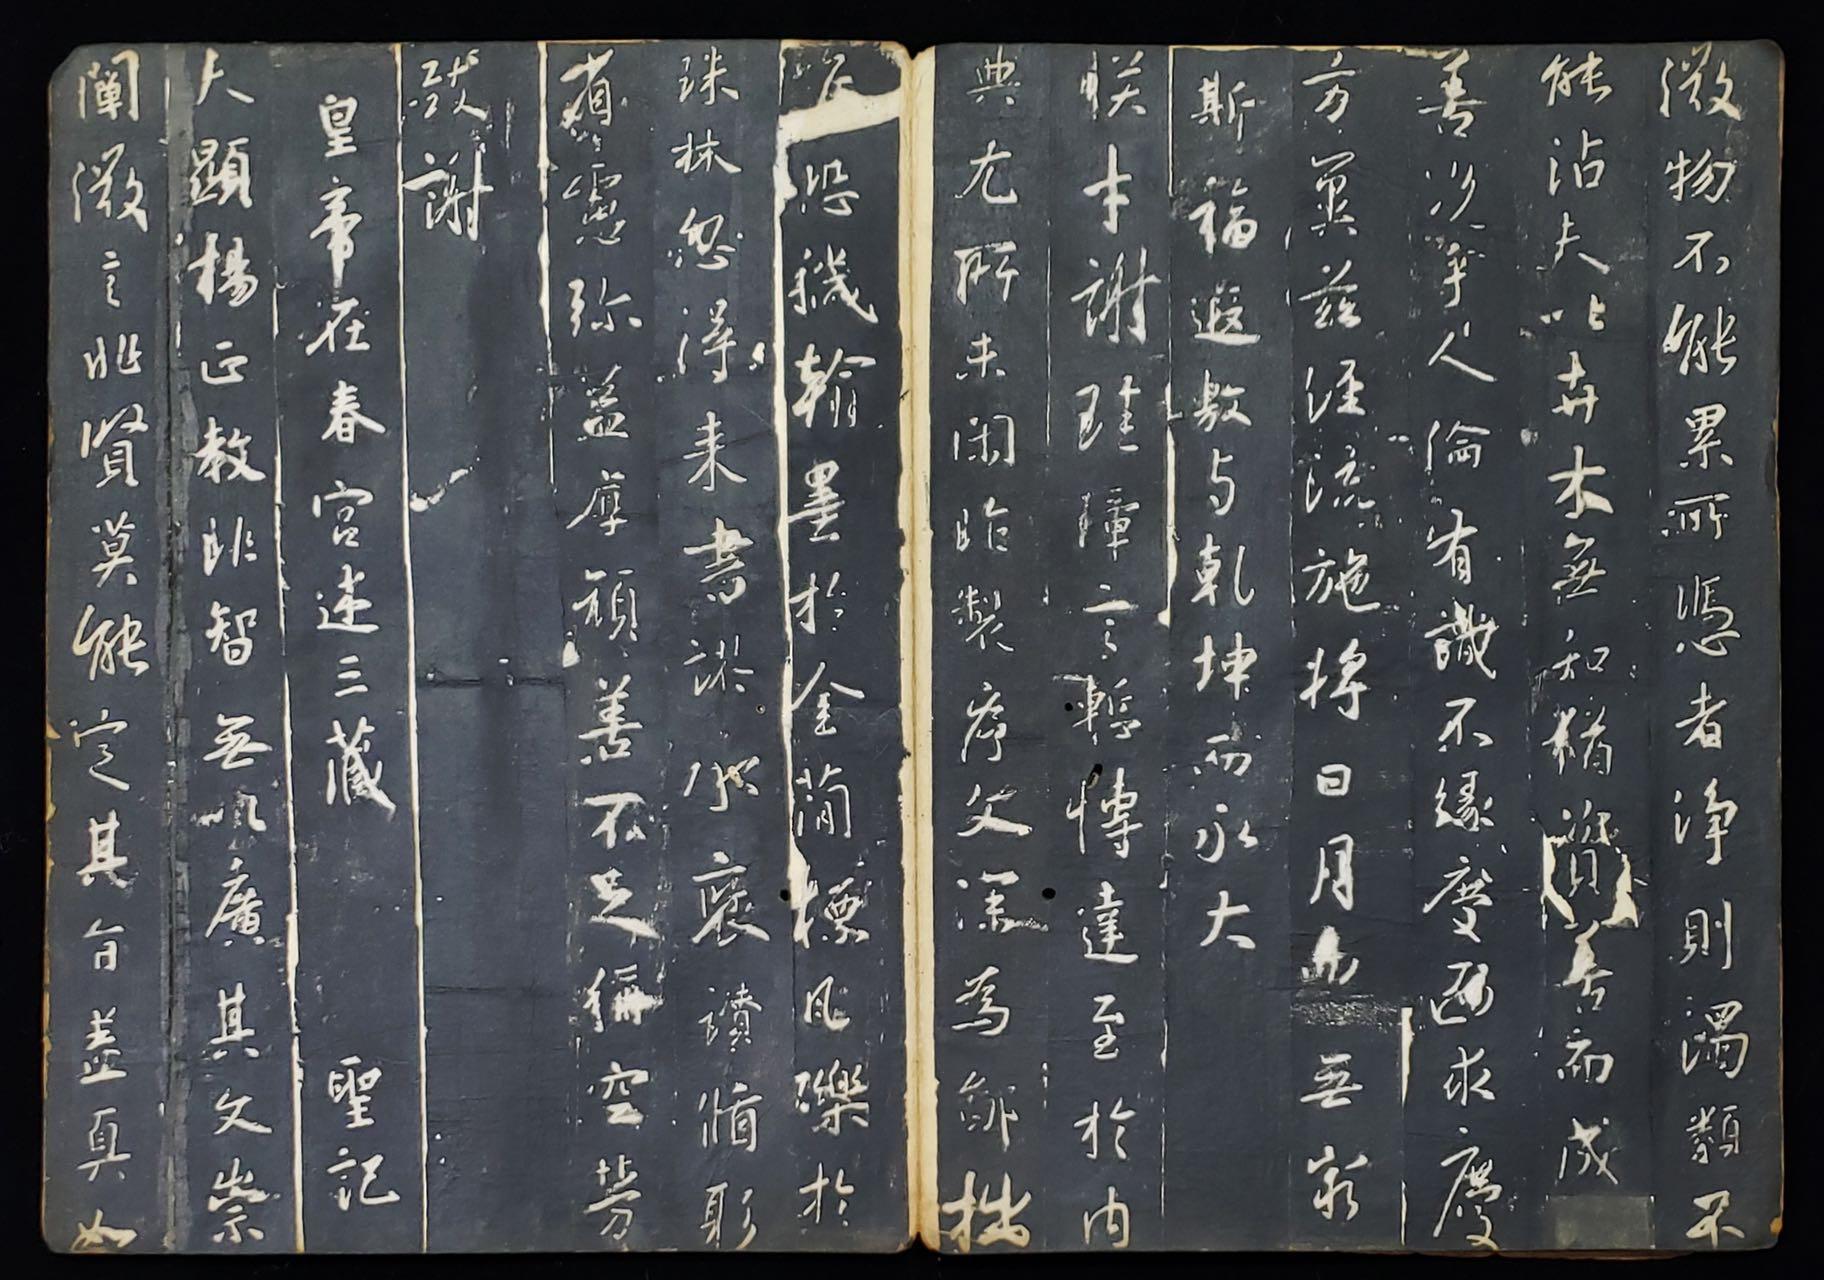 微物不能累所憑者淨則濁類不
能沾夫以卉木無知猶資善而成
善況乎人倫有識不緣慶而求慶
方冀茲經流施將日月而無窮
斯福遐敷與乾坤而永大
朕才謝珪璋言慙博達至於內
典尤所未閑昨製序文深為鄙拙
恐穢翰墨於金簡標瓦礫於
珠林忽得來書謬承褒讚循躬
省慮弥益厚顏善不足稱空勞
致謝
皇帝在春宮述三藏 聖記
夫顯揚正教非智無以廣其文崇
闡微言非賢莫能定其旨蓋真如